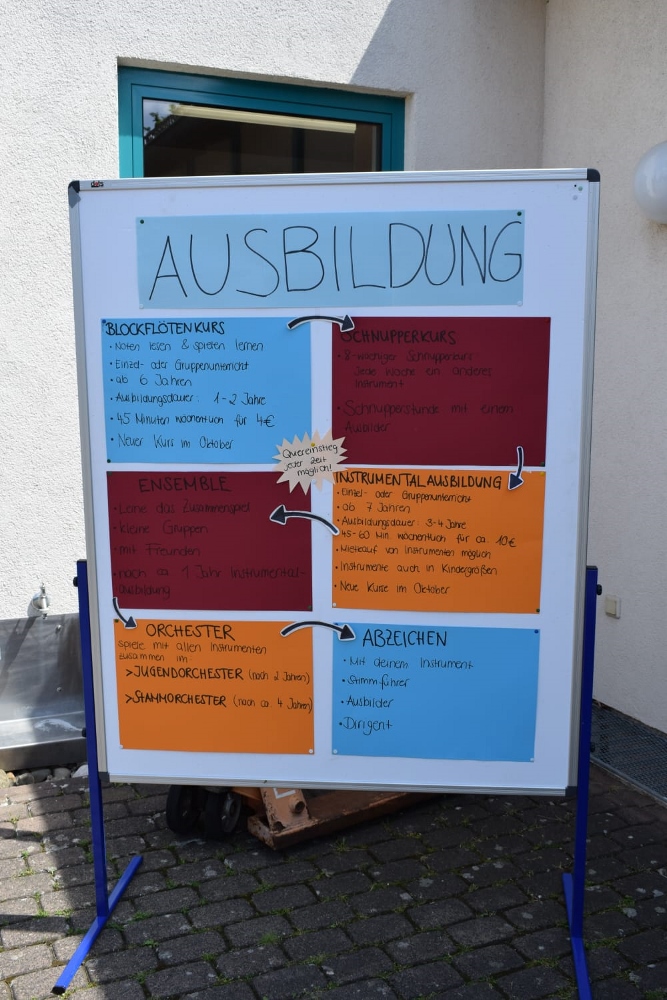 AUSBILDUNG
BLOCKFLÖTENKURS
• Noten lesen & spielen lernen
• Einzel- oder Gruppenunterricht
• ab 6 Jahren
• Ausbildungsdauer: 1-2 Jahre
• 45 Minuten wöchentlich für 4€
• Neuer Kurs im Oktober
SCHNUPPERKURS
• 8-wöchiger Schnupperkurs
Jede Woche ein anderes
Instrument
• Schnupperstunde mit einem
Ausbilder
Quereinstieg
jeder Zeit
möglich!
INSTRUMENTALAUSBILDUNG
• Einzel- oder Gruppenunterricht
• ab 7 Jahren
• Ausbildungsdauer: 3-4 Jahre
• 45-60 Min. wöchentlich für ca. 10€
• Mietkauf von Instrumenten möglich
• Instrumente auch in Kindergrößen
• Neue Kurse im Oktober
ENSEMBLE
• Lerne das Zusammenspiel
• kleine Gruppen
• mit Freunden
• nach ca. 1 Jahr Instrumental-
ausbildung
ORCHESTER
Spiele mit allen Instrumenten
zusammen im:
>JUGENDORCHESTER (nach 2 Jahren)
>STAMMORCHESTER (nach ca. 4 Jahren)
ABZEICHEN
• Mit deinem Instrument
• Stimmführer
• Ausbilder
• Dirigent